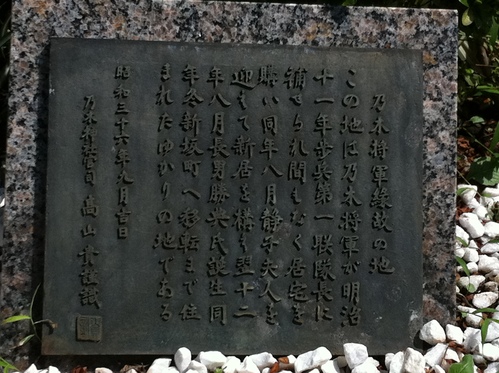 乃木将軍縁故の地
この地は乃木将軍が明治
十一年歩兵第一聯隊長に
補せられ間もなく居宅を
購い同年八月静子夫人を
迎えて新居を構え翌十二
年八月長男勝典氏誕生同
年冬新坂町へ移転まで住
まれたゆかりの地である
昭和三十六年九月吉日
乃木神社宮司 高山貴謹誠